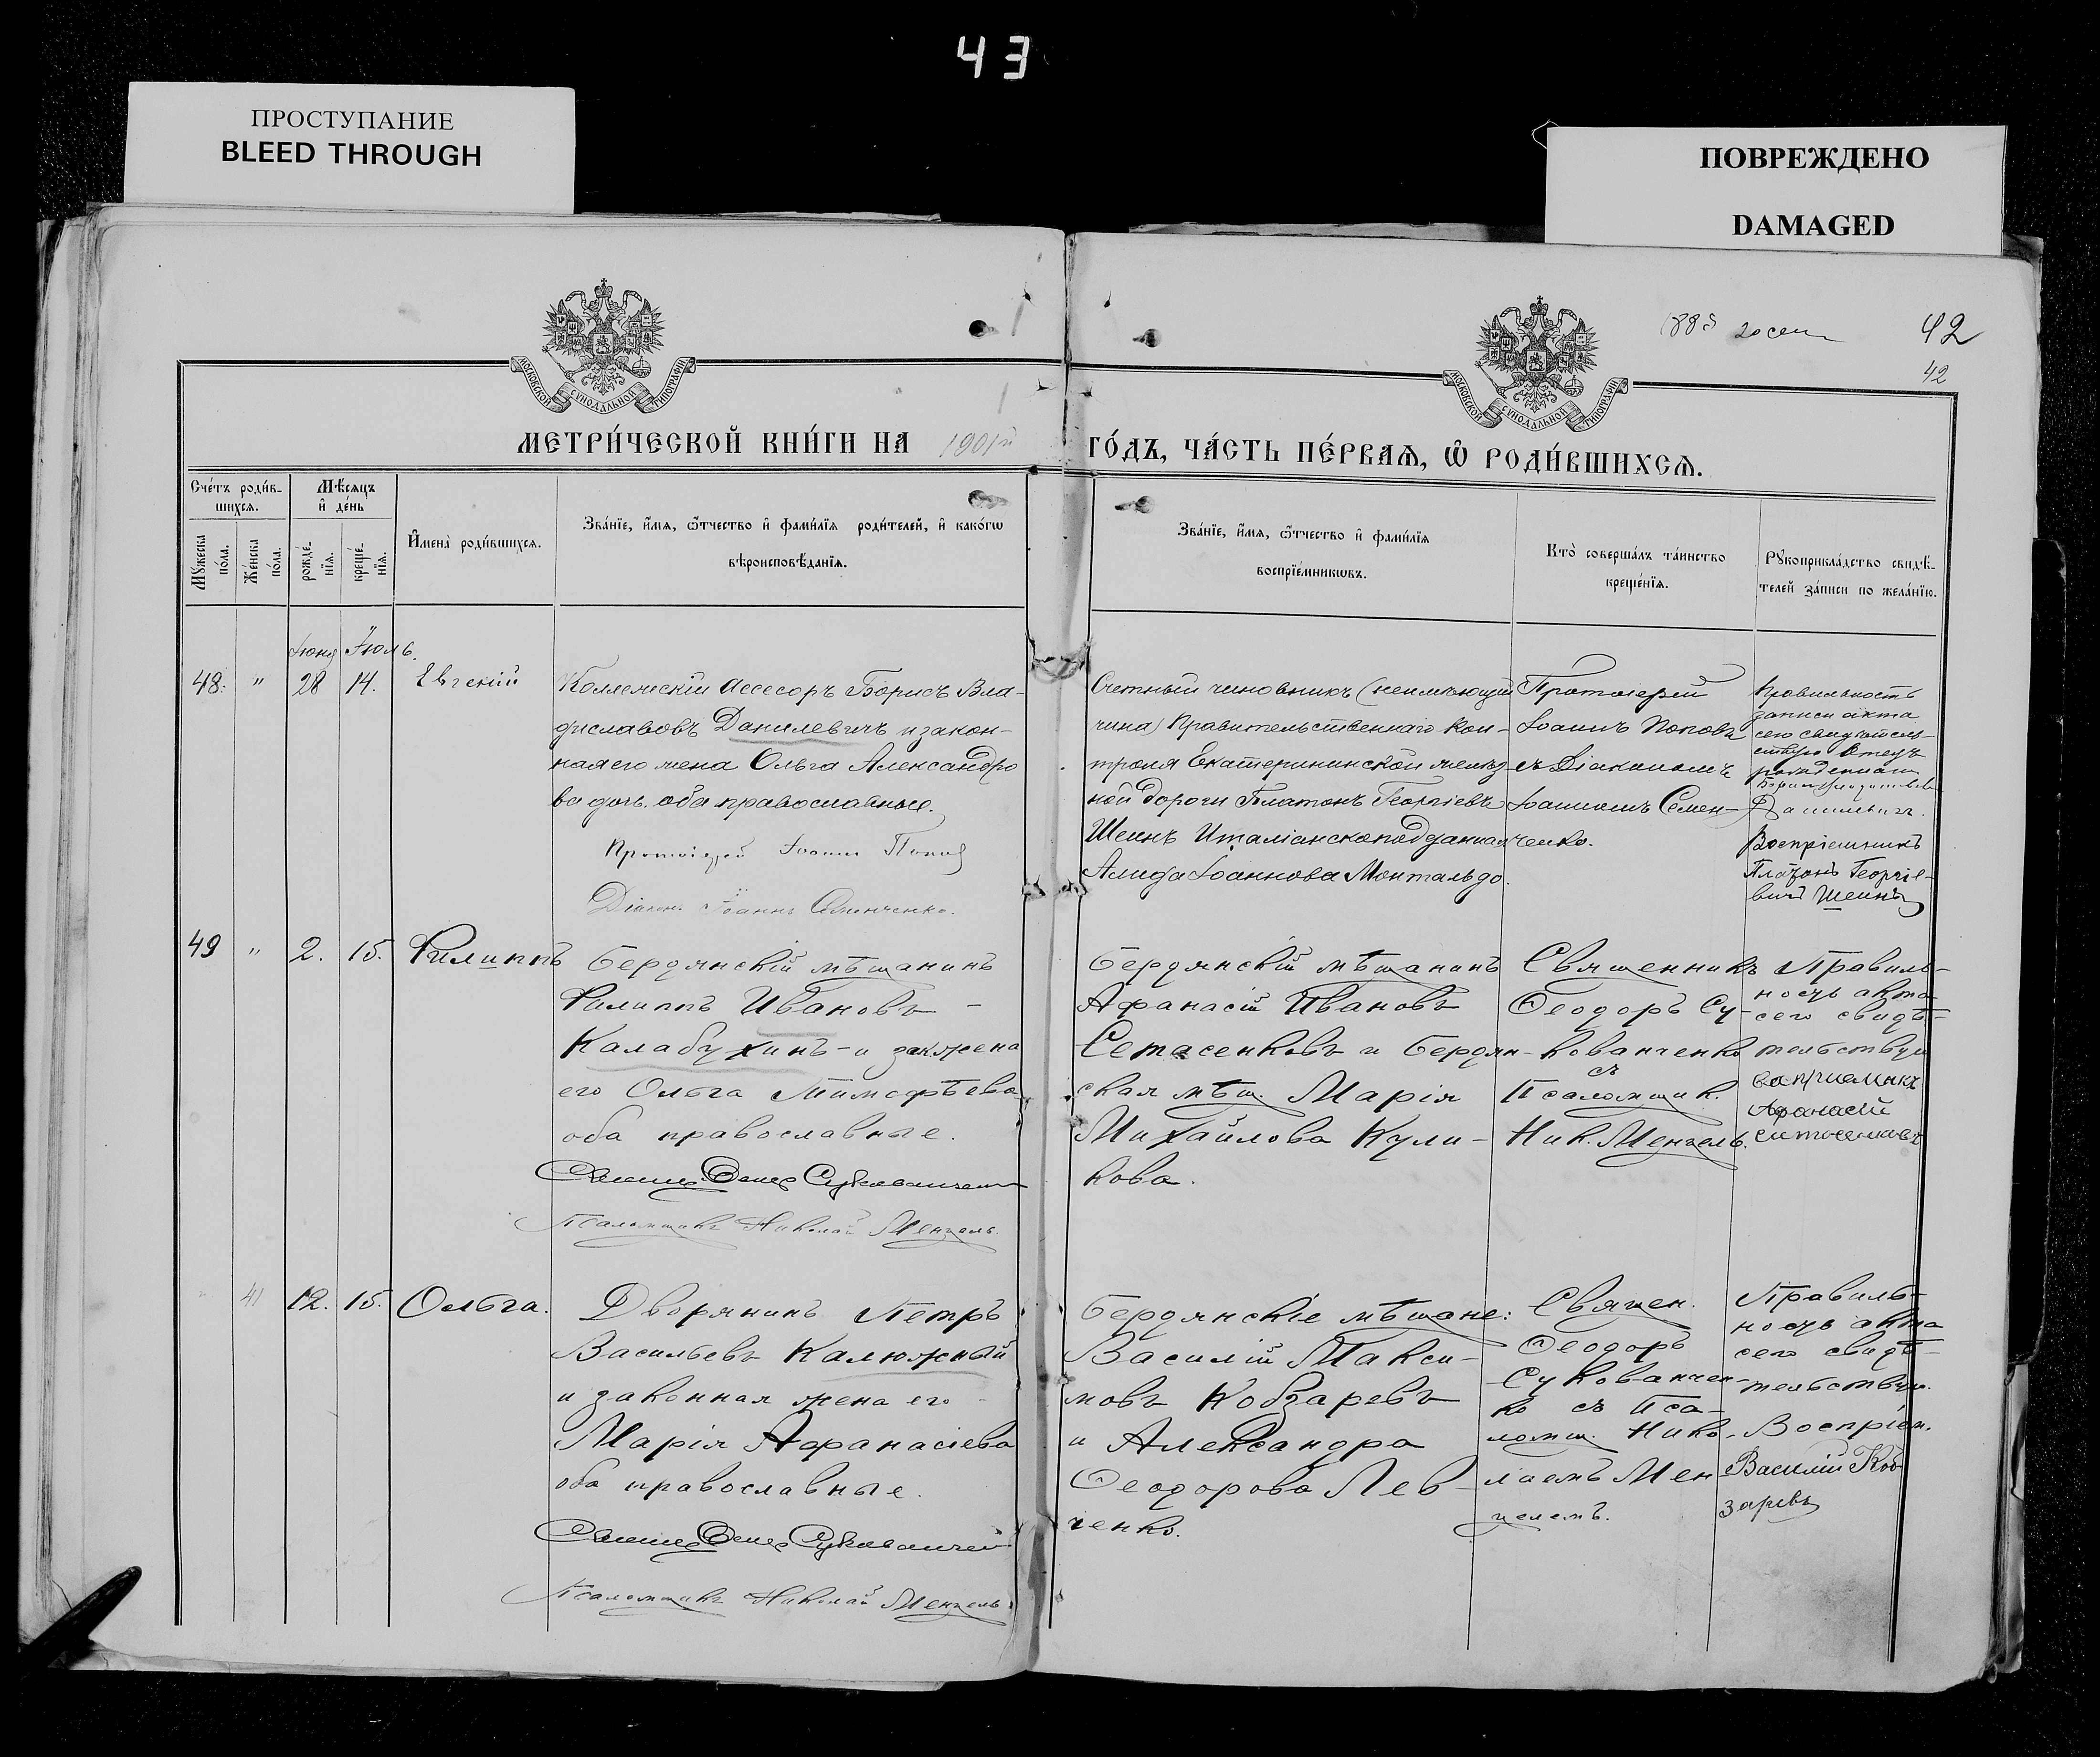 43
ПРОСТУПАНИЕ
BLEED THROUGH
ПОВРЕЖДЕНО
DAMAGED
42
42
МОСКОВСКОЙ СѴНОДАЛЬНОЙ ТИПОГРАФІИ
МОСКОВСКОЙ СѴНОДАЛЬНОЙ ТИПОГРАФІИ
МЕТРИ́ЧЕСКОЙ КНИ́ГИ НА 1901й ГО́ДЪ, ЧА́СТЬ ПЕ́РВАѦ, Ѡ҆ РОДИ́ВШИХСѦ.
Сче́тъ роди́в-
шихсѧ.
Мꙋ́жеска
по́ла.
Же́нска
по́ла.
Мѣ́сѧцъ
и҆ де́нь
рожде́-
нїѧ.
креще́-
нїѧ.
И҆мена̀ роди́вшихсѧ.
Зва́нїе, и҆́мѧ, ѻ҆́тчество и҆ фами́лїѧ роди́телей, и҆ како́гѡ
вѣроисповѣ́данїѧ.
Зва́нїе, и҆́мѧ, ѻ҆́тчество и҆ фами́лїѧ
воспрїе́мникѡвъ.
Кто̀ соверша́лъ та́инство
креще́нїѧ.
Рꙋкоприкла́дство свидѣ́-
телей за́писи по жела́нїю.
Іюня Іюль.
48. " 28 14. Евгеній
Коллежскій Ассесоръ Борисъ Вла-
диславовъ Данилевичъ и закон-
ная его жена Ольга Александро
ва дочь. оба православные.
Протоіерей Іоаннъ Поповъ
Діаконъ Іоаннъ Семенченко.
Счетный чиновникъ (неимѣющій
чина) Правительственнаго Кон-
троля Екатерининской желѣз-
ной дороги Платонъ Георгіевъ
Шеинъ Италіанскоподданная
Алида Іоаннова Монтальдо.
Протоіерей
Іоаннъ Поповъ
съ Діакономъ
Іоанномъ Семен-
ченко.
Правильность
записи акта
сего свидѣтель-
ствую Отецъ
Данилевичъ.
Воспріемникъ
Платонъ Георгіе-
вичъ Шеинъ
49 " 2. 15. Филиппъ
Бердянскій мѣщанинъ
Филиппъ Ивановъ -
Калабухинъ - и зак. жена
его Ольга Тимофѣева
оба православные.
Священ. Феодоръ Сукованченко
Псаломщикъ Николай Менцель.
Бердянскій мѣщанинъ
Афанасій Ивановъ
Сетасенковъ и Бердян-
ская мѣщ. Марія
Михайлова Кули-
кова.
Священникъ
Ѳеодоръ Су-
кованченко
съ
Псаломщик.
Ник. Менцель.
Правиль-
ность акта
сего свидѣ-
тельствую
Афанасій
41 12. 15. Ольга.
Дворянинъ Петръ
Васильевъ Калюжный
и законная жена его
Марія Афанасіева
оба православные.
Священ. Феодоръ Сукованчен
Псаломщикъ Николай Менцель.
Бердянскіе мѣщане:
Василій Макси-
мовъ Кобзаревъ
и Александра
Ѳеодорова Лев-
ченко.
Священ.
Ѳеодоръ
Сукованчен-
ко съ Пса-
ломщ. Нико-
лаемъ Мен-
целемъ.
Правиль-
ность акта
сего свидѣ-
тельствую.
Воспріем.
Василій Коб
заревъ